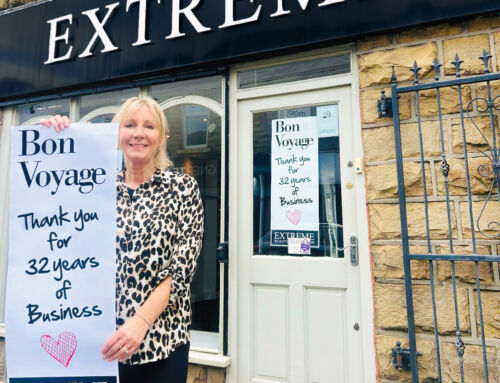 EXTREME
Bon
Voyage
Thank you
for
32 years
of
Business
Bon
Voyage
Thank you
for
32 years
of
Business
EXTREME